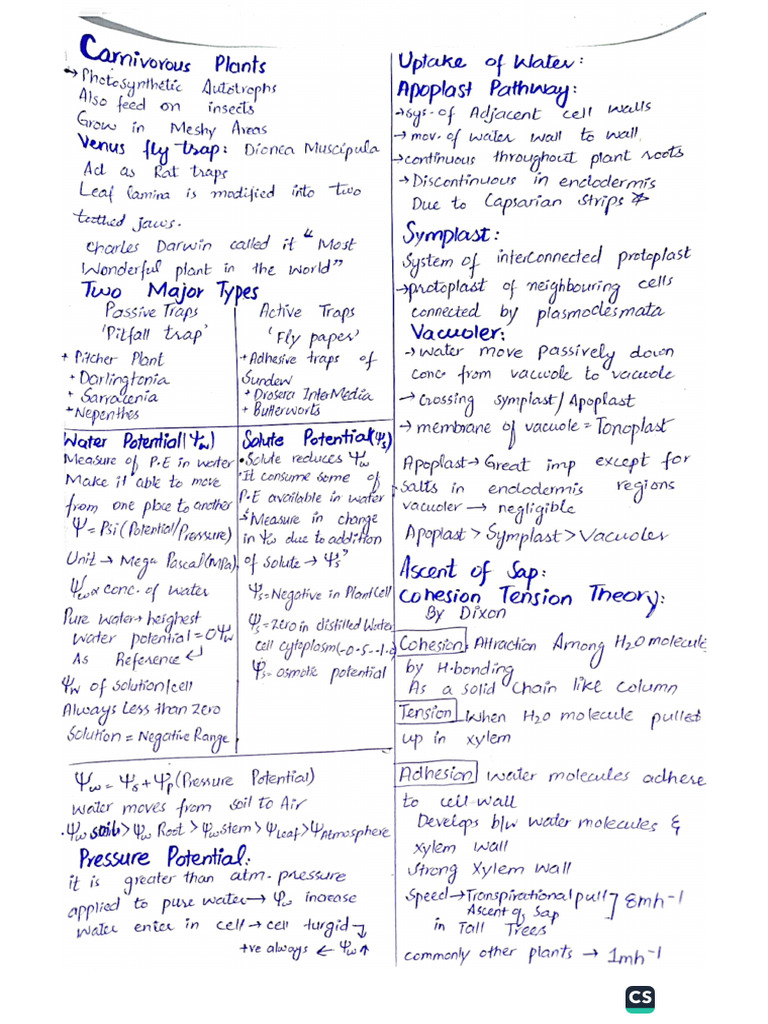 Carnivorous Plants
→ Photosynthetic Autotrophs
Also feed on insects
Grow in Meshy Areas
Venus fly trap: Dionca Muscipula
Act as Rat traps
Leaf lamina is modified into two
toothed jaws.
Charles Darwin called it "Most
Wonderful plant in the world"
Two Major Types
Passive Traps
'Pitfall trap'
+ Pitcher Plant
+ Darlingtonia
+ Sarracenia
+ Nepenthes
Active Traps
'Fly paper'
+ Adhesive traps of
Sundew
+ Drosera InterMedia
+ Butterworts
Water Potential(Ψw)
Measure of P.E in water
Make it able to move
from one place to another
Ψ = Psi (Potential/Pressure)
Unit → Mega Pascal(MPa)
Ψw ∝ conc. of water
Pure water → heighest
water potential = 0Ψw
As Reference ↵
Ψw of solution/cell
Always Less than zero
Solution = Negative Range
Solute Potential(Ψs)
• Solute reduces Ψw
• It consume some of
P.E available in water
"Measure in change
in Ψw due to addition
of solute → Ψs"
Ψs = Negative in Plant Cell
Ψs = Zero in distilled Water
cell cytoplasm(-0.5--1.0)
Ψs = osmotic potential
Ψw = Ψs + Ψp (Pressure Potential)
water moves from soil to Air
Ψw soil > Ψw Root > Ψw stem > Ψ Leaf > Ψ Atmosphere
Pressure Potential:
it is greater than atm. pressure
applied to pure water → Ψw increase
water enter in cell → cell turgid ↴
+ve always ← Ψw ↑
Uptake of Water:
Apoplast Pathway:
→ sys. of Adjacent cell walls
→ mov. of water wall to wall.
→ continuous throughout plant roots
→ Discontinuous in endodermis
Due to Capsarian Strips *
Symplast:
System of interconnected protoplast
→ protoplast of neighbouring cells
connected by plasmodesmata
Vacuoler:
→ water move passively down
conc from vacuole to vacuole
→ Crossing symplast/Apoplast
→ membrane of vacuole = Tonoplast
Apoplast → Great imp except for
salts in endodermis regions
vacuoler → negligible
Apoplast > Symplast > Vacuoler
Ascent of Sap:
Cohesion Tension Theory:
By Dixon
Cohesion: Attraction Among H2O molecule
by H-bonding
As a solid Chain like Column
Tension When H2O molecule pulled
up in xylem
Adhesion water molecules adhere
to cell wall
Develops b/w water molecules &
xylem wall
Strong Xylem wall
Speed → Transpirational pull ] 8mh-1
Ascent of Sap
in Tall Trees
commonly other plants → 1mh-1
CS